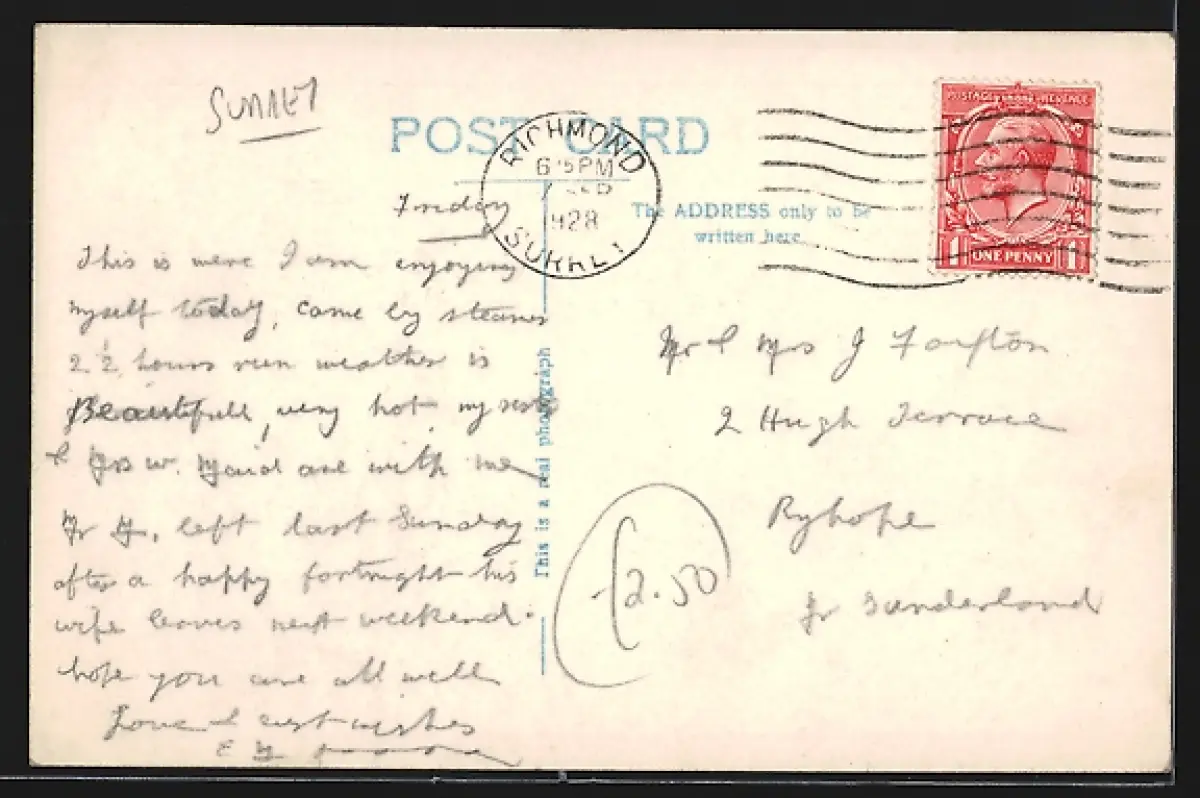 SURREY
POST CARD
RICHMOND
6 15 PM
7 SEP
1928
SURREY
POSTAGE REVENUE
1 ONE PENNY 1
The ADDRESS only to be
written here
Friday
This is were I am enjoying
myself today, came by steamer
2½ hours run weather is
Beautifull, very hot, my sister
& W. Maid are with me
Mr left last Sunday
after a happy fortnight his
wife leaves next weekend.
hope you are all well
Love & best wishes
This is a real photograph
Mr & Mrs J
2 Hugh Terrace
Ryhope
Nr Sunderland
£2.50